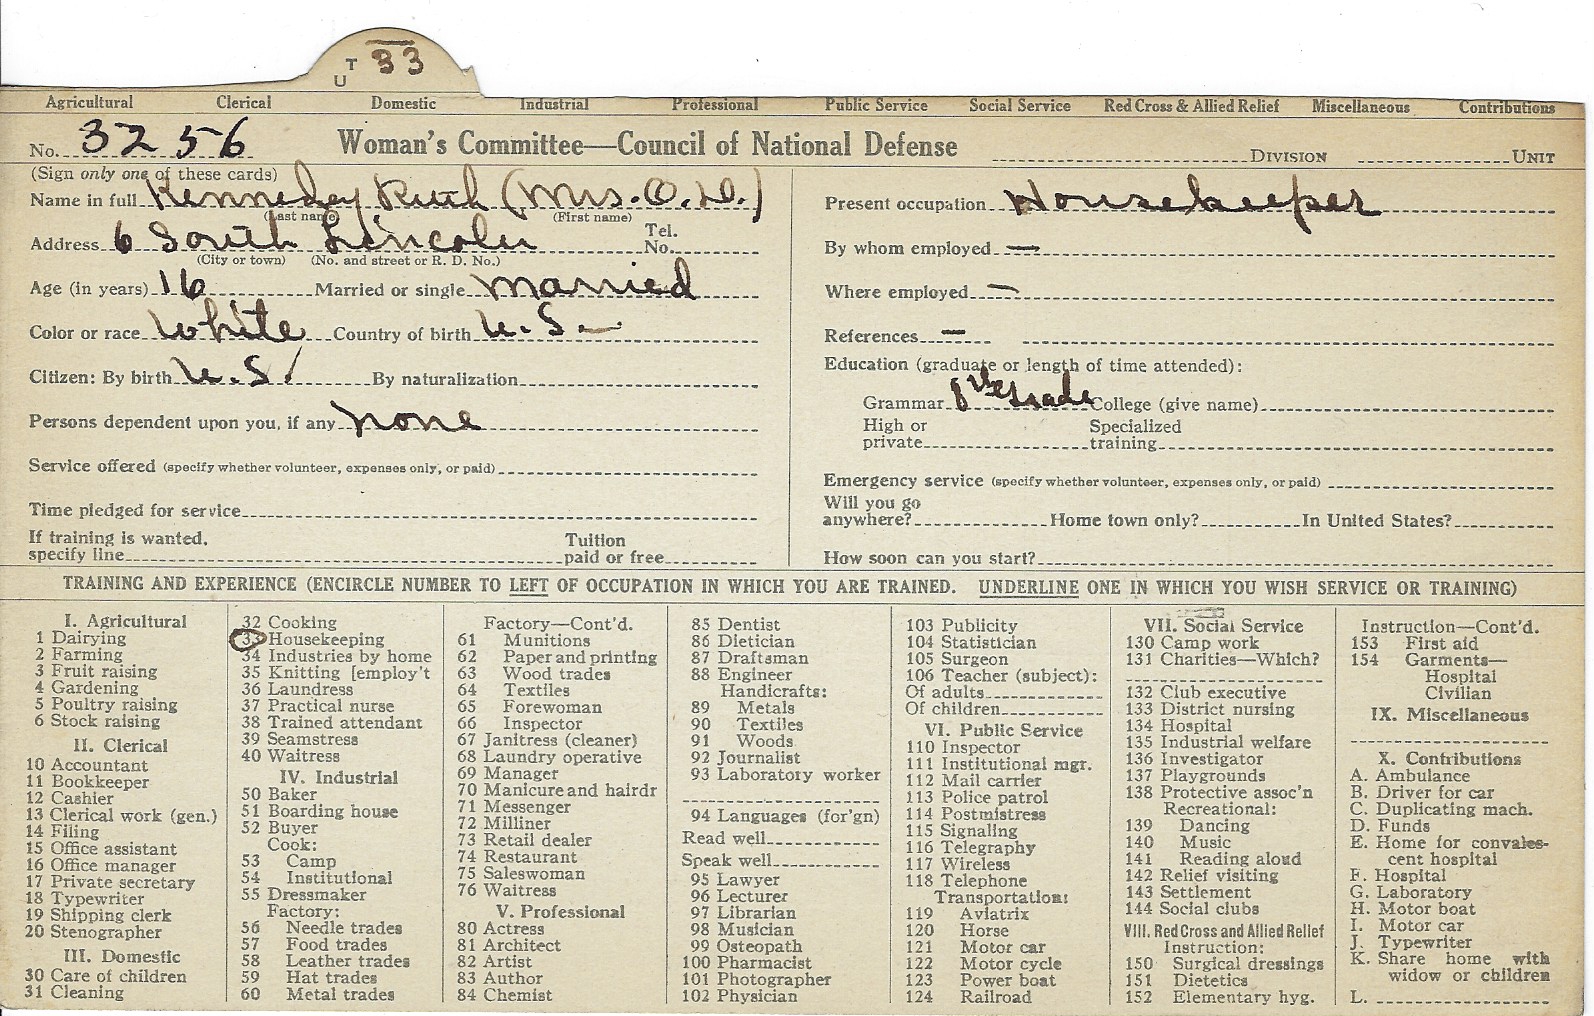 U T 33
Agricultural Clerical Domestic Industrial Professional Public Service Social Service Red Cross & Allied Relief Miscellaneous Contributions
No. 3256 Woman's Committee—Council of National Defense DIVISION UNIT
(Sign only one of these cards)
Name in full Kennedey Ruth (Mrs. O. D.)
(Last name) (First name)
Address 6 South Lincoln Tel. No.
(City or town) (No. and street or R. D. No.)
Age (in years) 16 Married or single married
Color or race White Country of birth U. S.
Citizen: By birth U. S. By naturalization
Persons dependent upon you, if any none
Service offered (specify whether volunteer, expenses only, or paid)
Time pledged for service
If training is wanted, Tuition
specify line paid or free
Present occupation Housekeeper
By whom employed —
Where employed —
References —
Education (graduate or length of time attended):
Grammar 8th Grade College (give name)
High or Specialized
private training
Emergency service (specify whether volunteer, expenses only, or paid)
Will you go
anywhere? Home town only? In United States?
How soon can you start?
TRAINING AND EXPERIENCE (ENCIRCLE NUMBER TO LEFT OF OCCUPATION IN WHICH YOU ARE TRAINED. UNDERLINE ONE IN WHICH YOU WISH SERVICE OR TRAINING)
I. Agricultural
1 Dairying
2 Farming
3 Fruit raising
4 Gardening
5 Poultry raising
6 Stock raising
II. Clerical
10 Accountant
11 Bookkeeper
12 Cashier
13 Clerical work (gen.)
14 Filing
15 Office assistant
16 Office manager
17 Private secretary
18 Typewriter
19 Shipping clerk
20 Stenographer
III. Domestic
30 Care of children
31 Cleaning
32 Cooking
33 Housekeeping
34 Industries by home
35 Knitting [employ't
36 Laundress
37 Practical nurse
38 Trained attendant
39 Seamstress
40 Waitress
IV. Industrial
50 Baker
51 Boarding house
52 Buyer
Cook:
53 Camp
54 Institutional
55 Dressmaker
Factory:
56 Needle trades
57 Food trades
58 Leather trades
59 Hat trades
60 Metal trades
Factory—Cont'd.
61 Munitions
62 Paper and printing
63 Wood trades
64 Textiles
65 Forewoman
66 Inspector
67 Janitress (cleaner)
68 Laundry operative
69 Manager
70 Manicure and hairdr
71 Messenger
72 Milliner
73 Retail dealer
74 Restaurant
75 Saleswoman
76 Waitress
V. Professional
80 Actress
81 Architect
82 Artist
83 Author
84 Chemist
85 Dentist
86 Dietician
87 Draftsman
88 Engineer
Handicrafts:
89 Metals
90 Textiles
91 Woods
92 Journalist
93 Laboratory worker
94 Languages (for'gn)
Read well
Speak well
95 Lawyer
96 Lecturer
97 Librarian
98 Musician
99 Osteopath
100 Pharmacist
101 Photographer
102 Physician
103 Publicity
104 Statistician
105 Surgeon
106 Teacher (subject):
Of adults
Of children
VI. Public Service
110 Inspector
111 Institutional mgr.
112 Mail carrier
113 Police patrol
114 Postmistress
115 Signaling
116 Telegraphy
117 Wireless
118 Telephone
Transportation:
119 Aviatrix
120 Horse
121 Motor car
122 Motor cycle
123 Power boat
124 Railroad
VII. Social Service
130 Camp work
131 Charities—Which?
132 Club executive
133 District nursing
134 Hospital
135 Industrial welfare
136 Investigator
137 Playgrounds
138 Protective assoc'n
Recreational:
139 Dancing
140 Music
141 Reading aloud
142 Relief visiting
143 Settlement
144 Social clubs
VIII. Red Cross and Allied Relief
Instruction:
150 Surgical dressings
151 Dietetics
152 Elementary hyg.
Instruction—Cont'd.
153 First aid
154 Garments—
Hospital
Civilian
IX. Miscellaneous
X. Contributions
A. Ambulance
B. Driver for car
C. Duplicating mach.
D. Funds
E. Home for convales-
cent hospital
F. Hospital
G. Laboratory
H. Motor boat
I. Motor car
J. Typewriter
K. Share home with
widow or children
L.